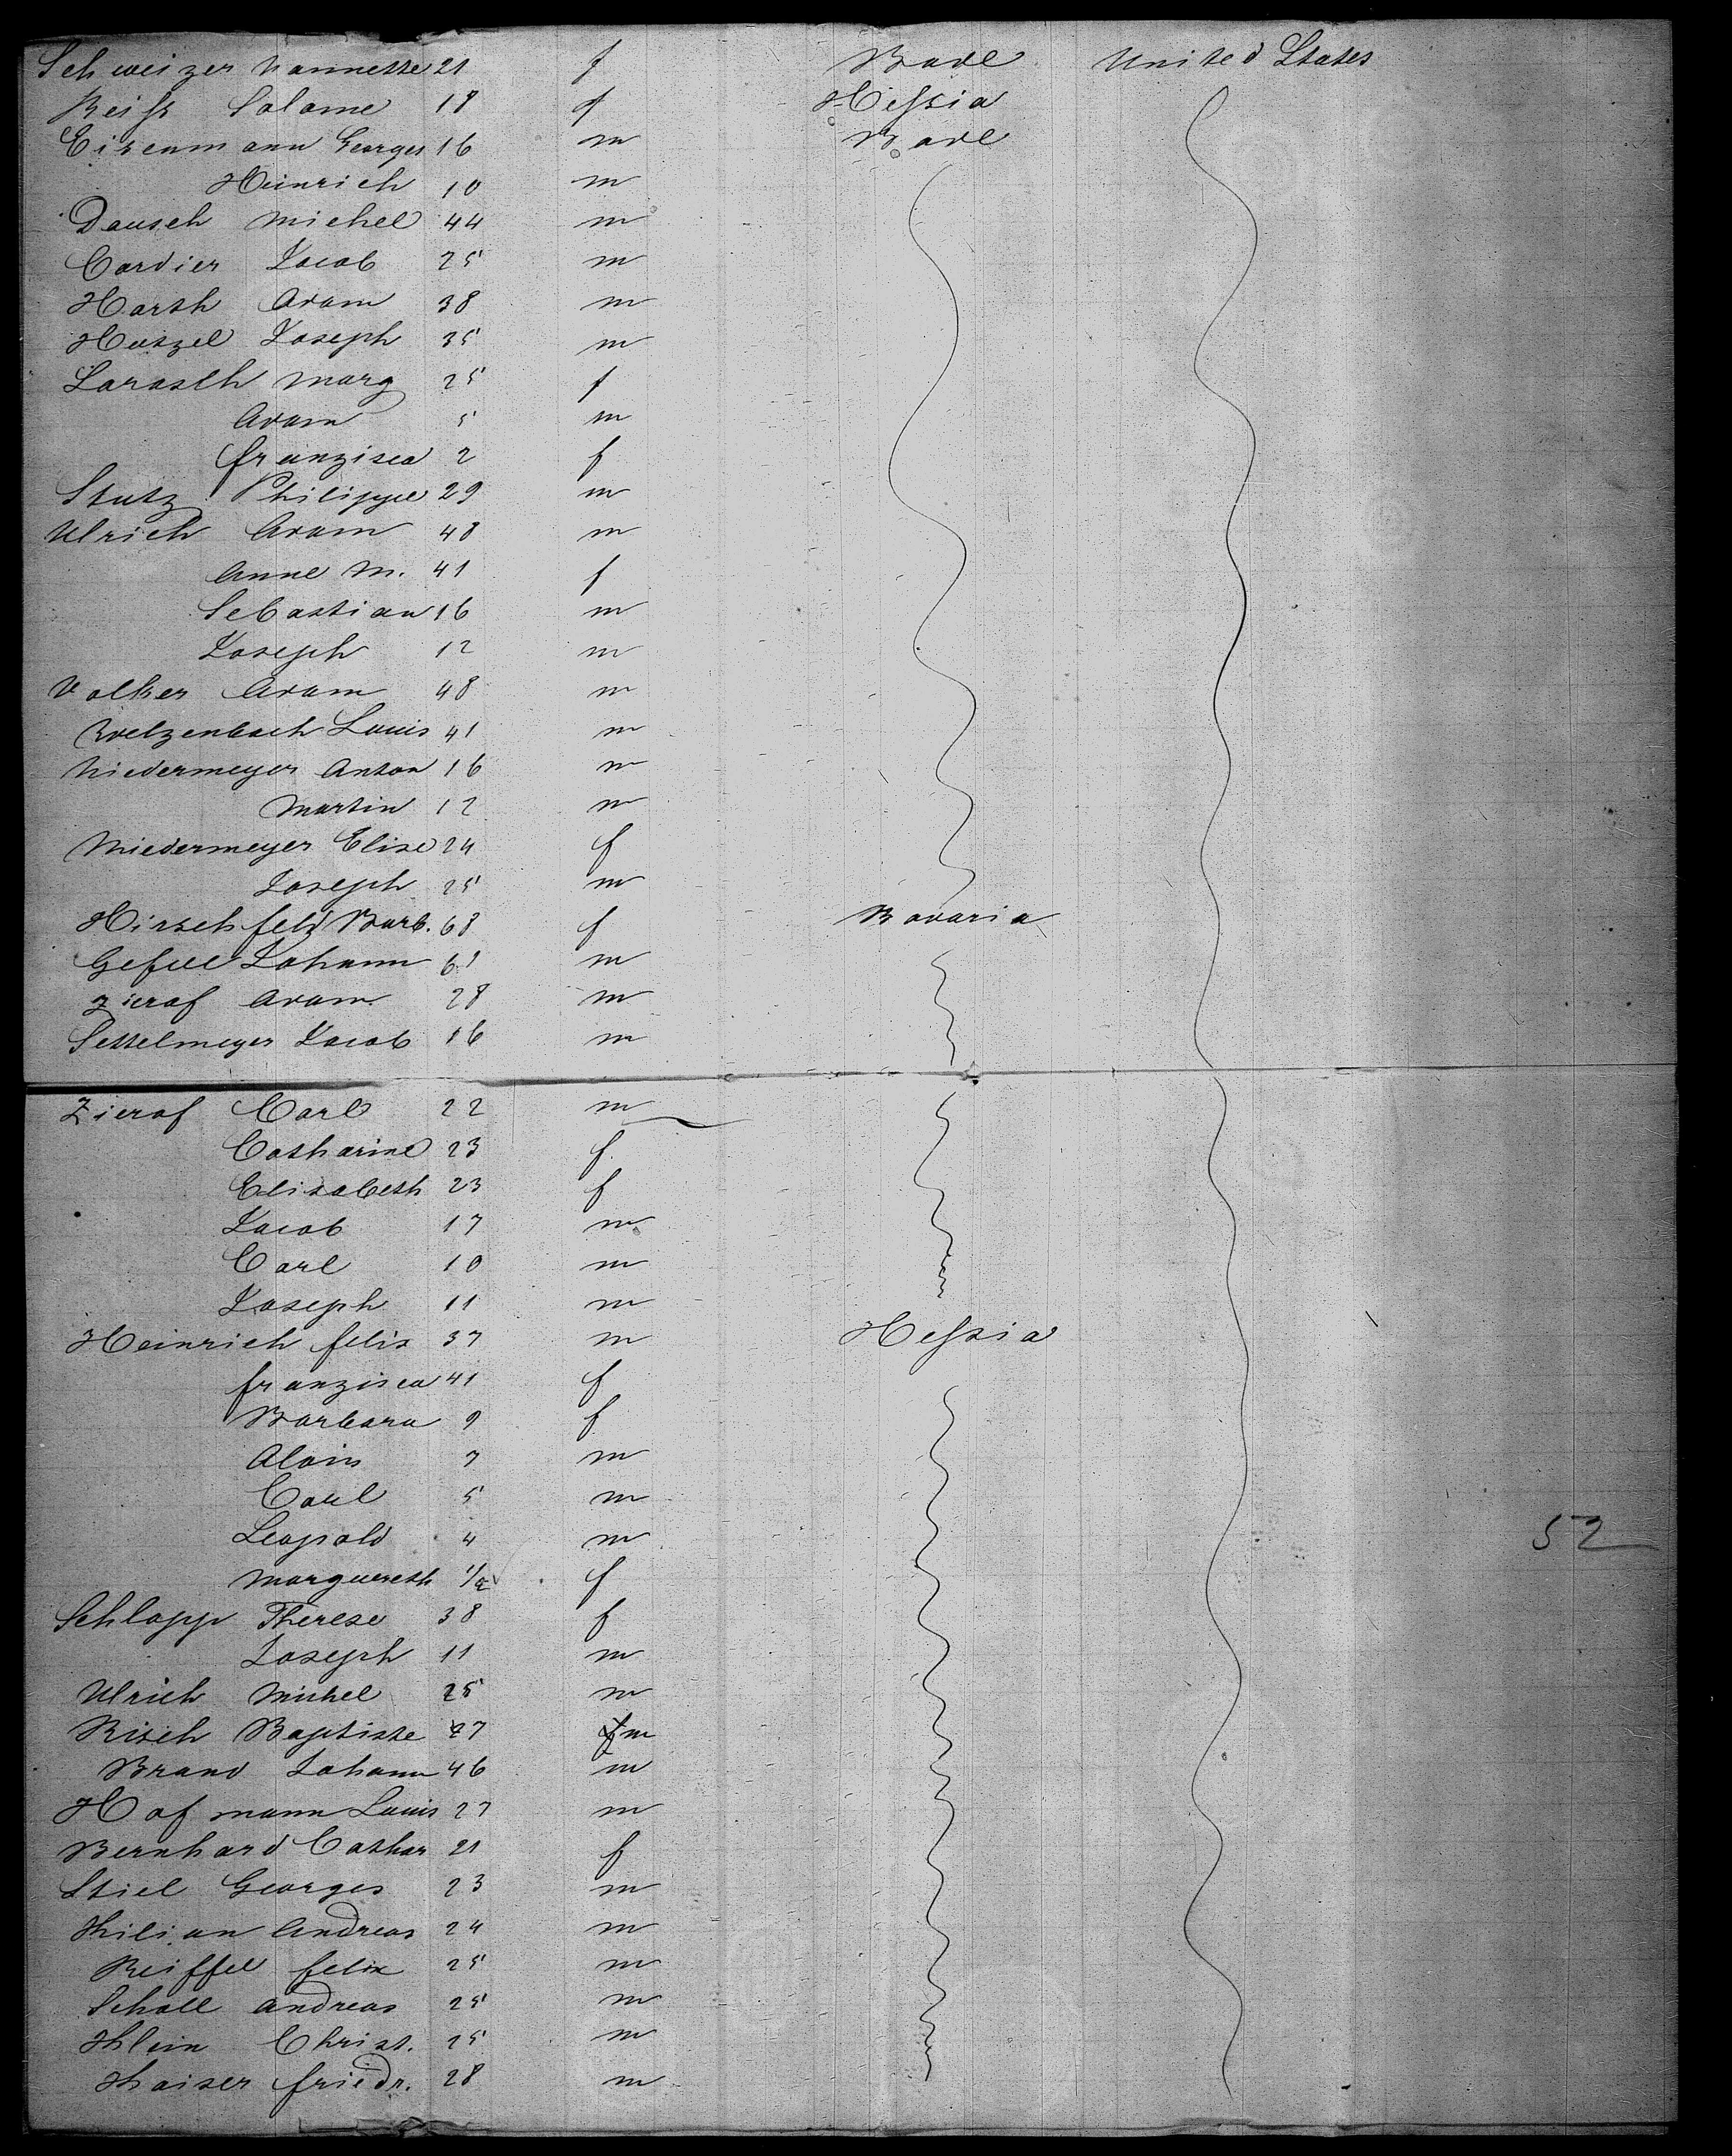 Schweizer Nannette 21 f Bade United States
Reiss Salome 18 f Hessia
Eisenmann Georges 16 m Bade
Heinrich 10 m
Dausch Michel 44 m
Cardier Jacob 25 m
Harth Adam 38 m
Hutzel Joseph 35 m
Larasch Marg 25 f
Adam 5 m
Franzisca 2 f
Stutz Philippe 29 m
Ulrich Adam 48 m
Anne M. 41 f
Sebastian 16 m
Joseph 12 m
Volker Adam 48 m
Welzenbach Louis 41 m
Niedermeyer Anton 16 m
Martin 12 m
Niedermeyer Elise 24 f
Joseph 25 m
Hirschfeld Barb. 68 f Bavaria
Johann 61 m
Zieraf Adam 28 m
Settelmeyer Jacob 16 m
Zieraf Carl 22 m
Catharine 23 f
Elisabeth 23 f
Jacob 17 m
Carl 10 m
Joseph 11 m
Heinrich Felix 37 m Hessia
Franzisca 41 f
Barbara 9 f
Alois 7 m
Carl 5 m
Leopold 4 m
Marguereth 1/2 f
52
Schlapp Therese 38 f
Joseph 11 m
Ulrich Michel 25 m
Risch Baptiste 27 m
Brand Johann 46 m
Hofmann Louis 27 m
Bernhard Cathar 21 f
Stiel Georges 23 m
Kilian Andreas 24 m
Reiffel Felix 25 m
Scholl Andreas 25 m
Klein Christ. 25 m
Kaiser Friedr. 28 m